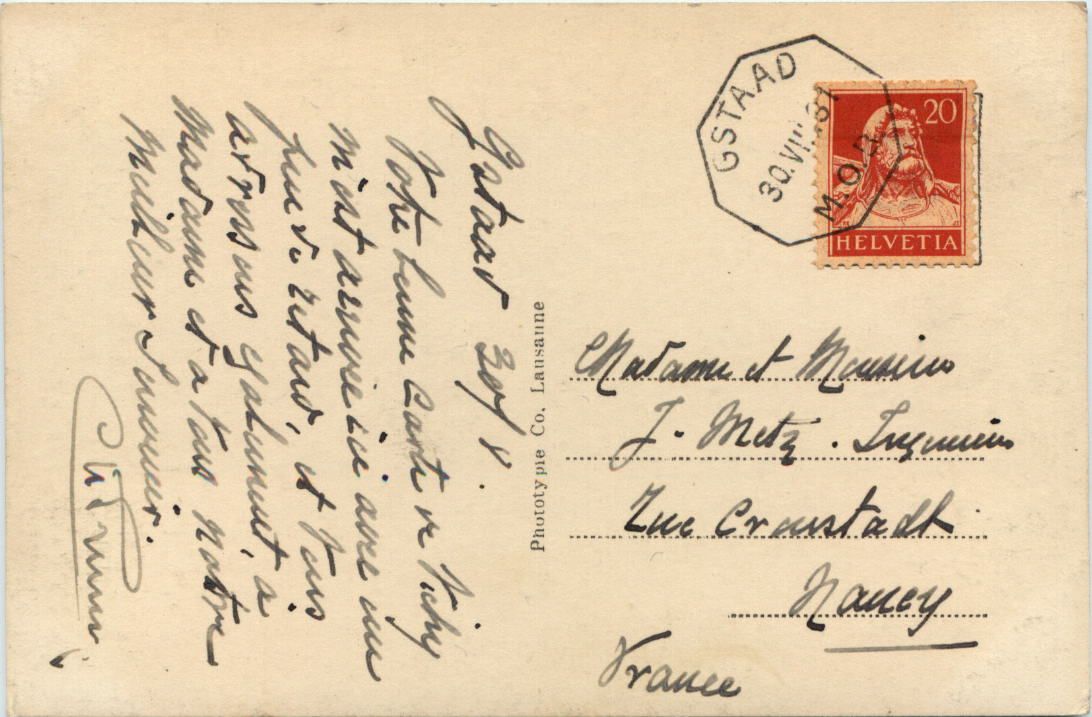 Gstaad 30/8.
Votre bonne carte de Vichy
m'est arrivée ici avec un
peu de retard, et vous
adressons également, à
Madame et à vous notre
meilleur souvenir.
Phototypie Co. Lausanne
GSTAAD
30.VIII.31
M.O.B.
20
HELVETIA
Madame et Monsieur
J. Metz. Ingénieur
Rue Cronstadt
Nancy
France